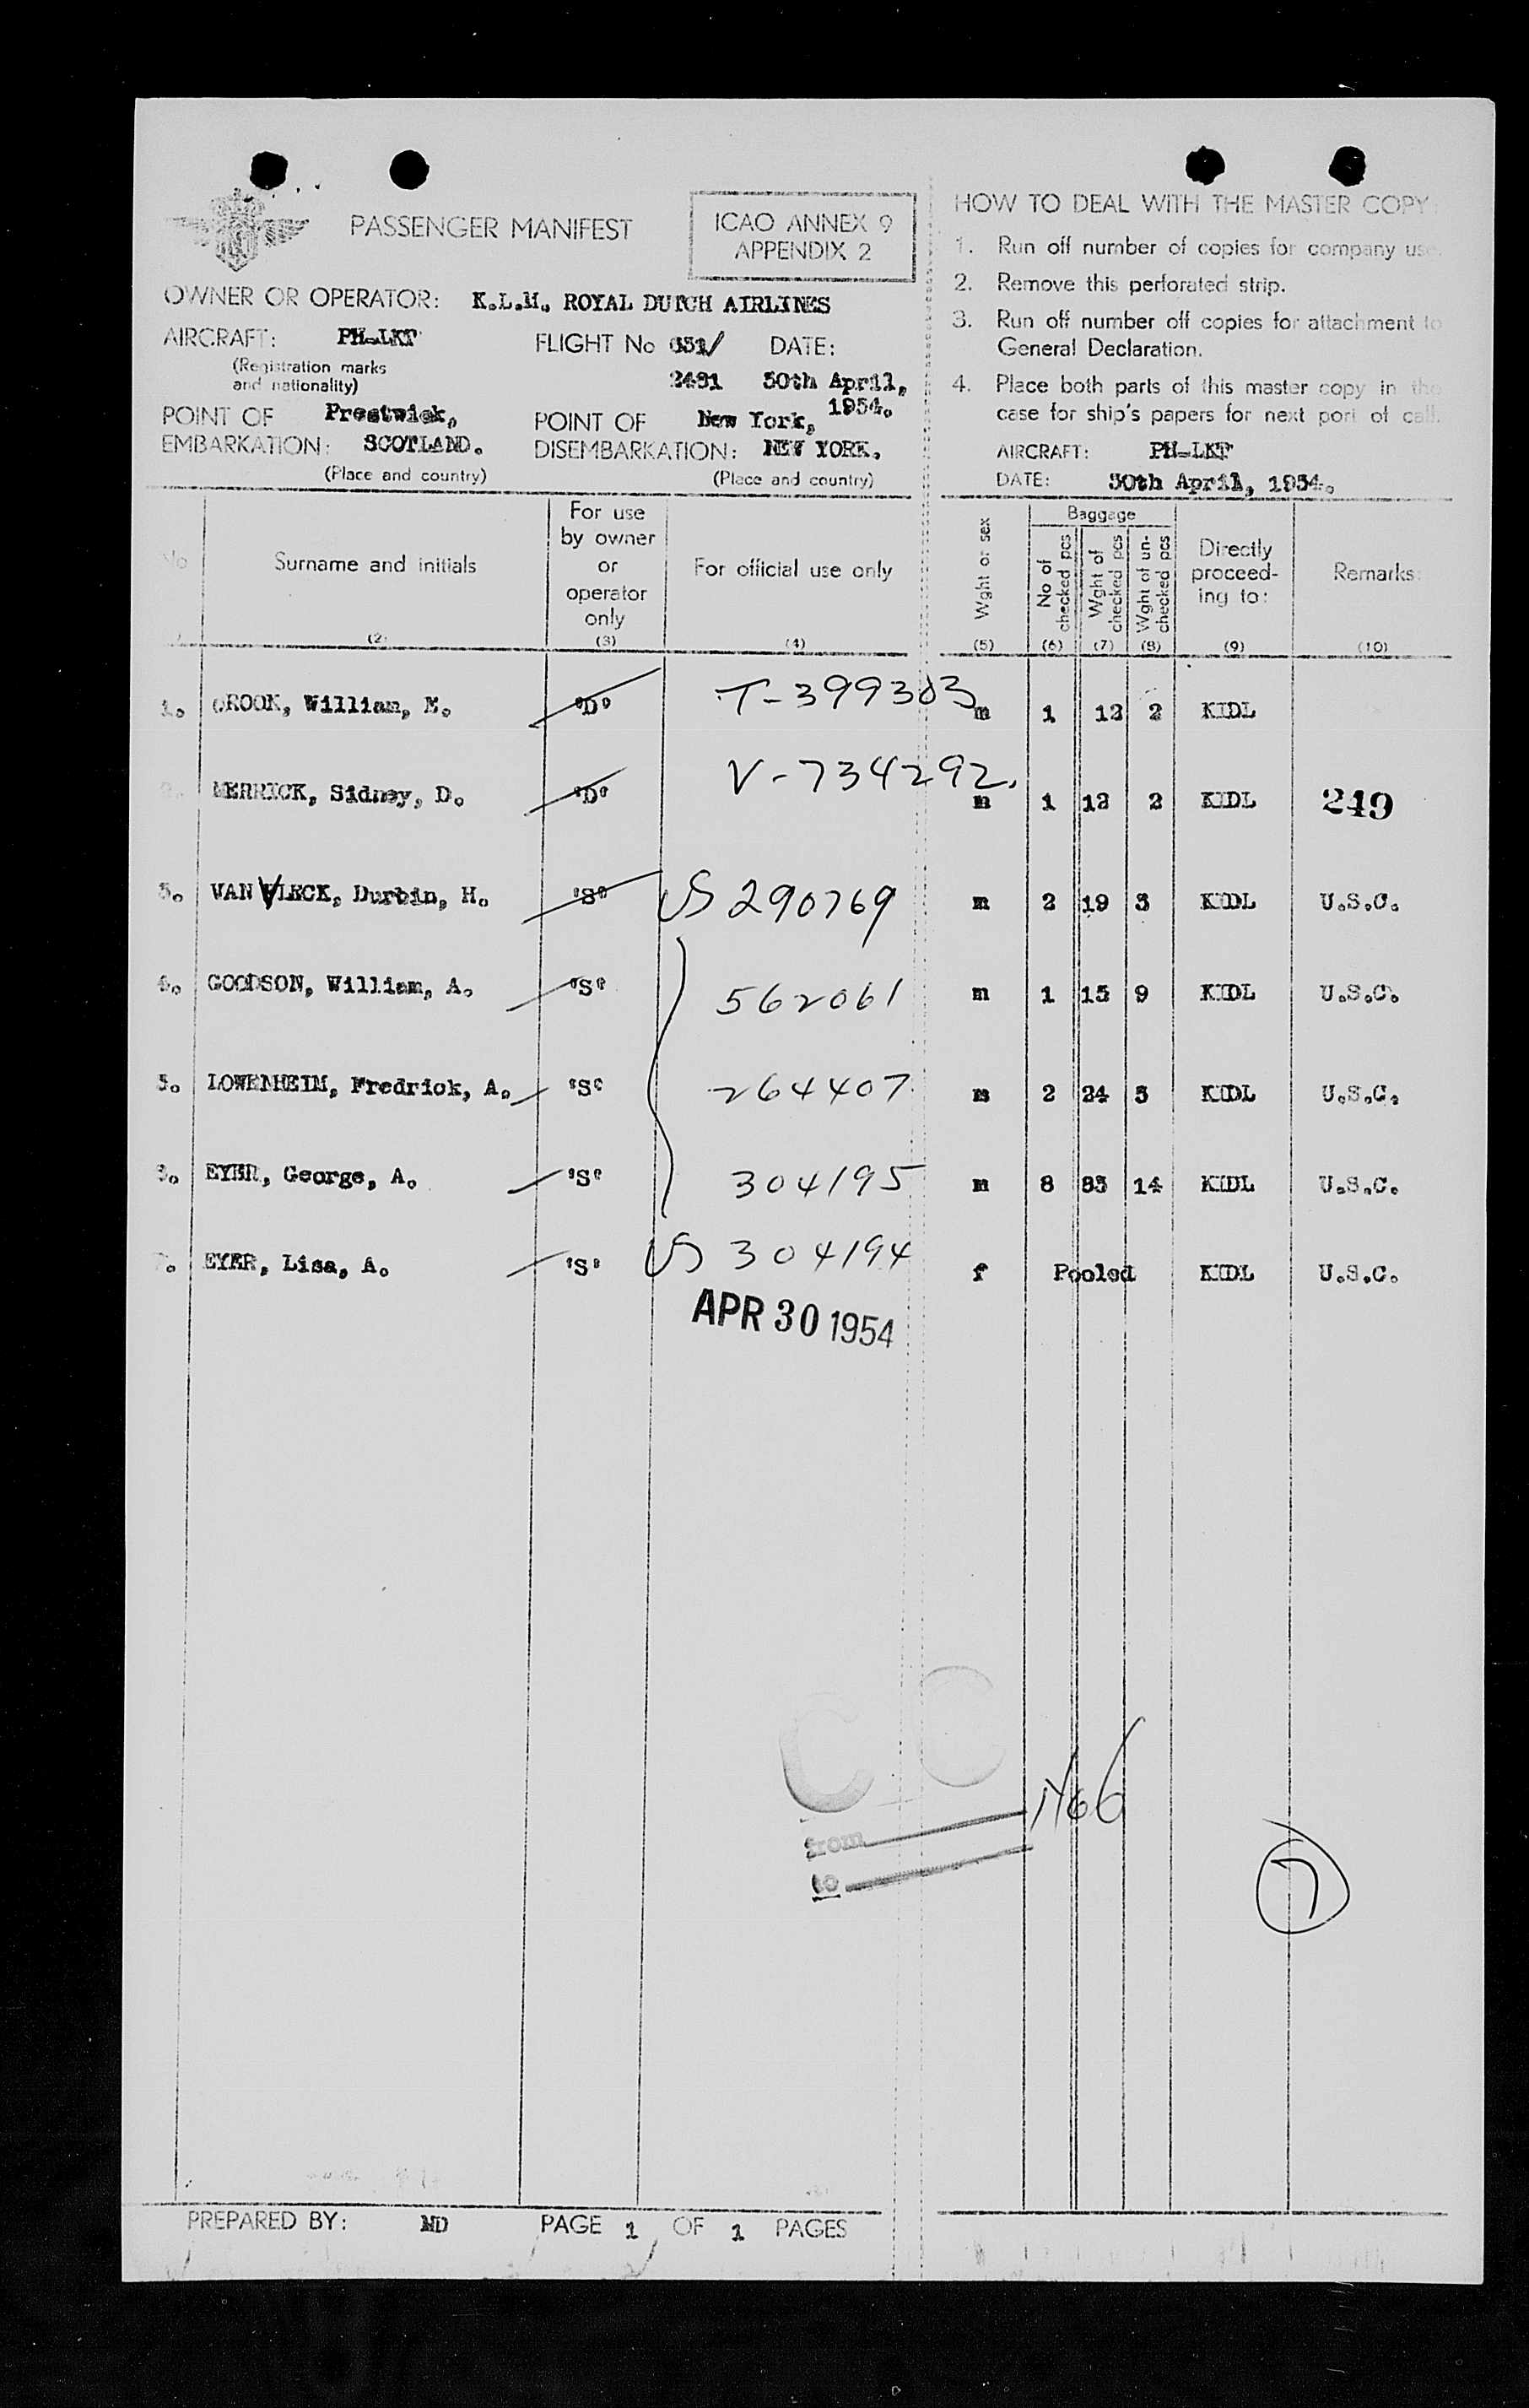 PASSENGER MANIFEST
ICAO ANNEX 9
APPENDIX 2
OWNER OR OPERATOR: K.L.M., ROYAL DUTCH AIRLINES
AIRCRAFT: PH-LKT
(Registration marks
and nationality)
FLIGHT No 651/
2431
DATE:
30th April,
1954.
POINT OF Prestwick,
EMBARKATION: SCOTLAND.
(Place and country)
POINT OF New York,
DISEMBARKATION: NEW YORK.
(Place and country)
HOW TO DEAL WITH THE MASTER COPY:
1. Run off number of copies for company use.
2. Remove this perforated strip.
3. Run off number off copies for attachment to
General Declaration.
4. Place both parts of this master copy in the
case for ship's papers for next port of call.
AIRCRAFT: PH-LKT
DATE: 30th April, 1954.
No
Surname and initials
(2)
For use
by owner
or
operator
only
(3)
For official use only
(4)
Wght or sex
(5)
Baggage
No of
checked pcs
(6)
Wght of
checked pcs
(7)
Wght of un-
checked pcs
(8)
Directly
proceed-
ing to:
(9)
Remarks:
(10)
1. CROOK, William, E. "D" T-399303 m 1 12 2 KIDL
2. MERRICK, Sidney, D. "D" V-734292. m 1 12 2 KIDL 249
3. VAN VLECK, Durbin, H. "S" US 290769 m 2 19 3 KIDL U.S.C.
4. GOODSON, William, A. "S" 562061 m 1 15 9 KIDL U.S.C.
5. LOWENHEIM, Fredrick, A. "S" 264407 m 2 24 3 KIDL U.S.C.
6. EYER, George, A. "S" 304195 m 8 83 14 KIDL U.S.C.
7. EYER, Lisa, A. "S" US 304194 f Pooled KIDL U.S.C.
APR 30 1954
CC
from
to
1466
7
PREPARED BY: MD PAGE 1 OF 1 PAGES